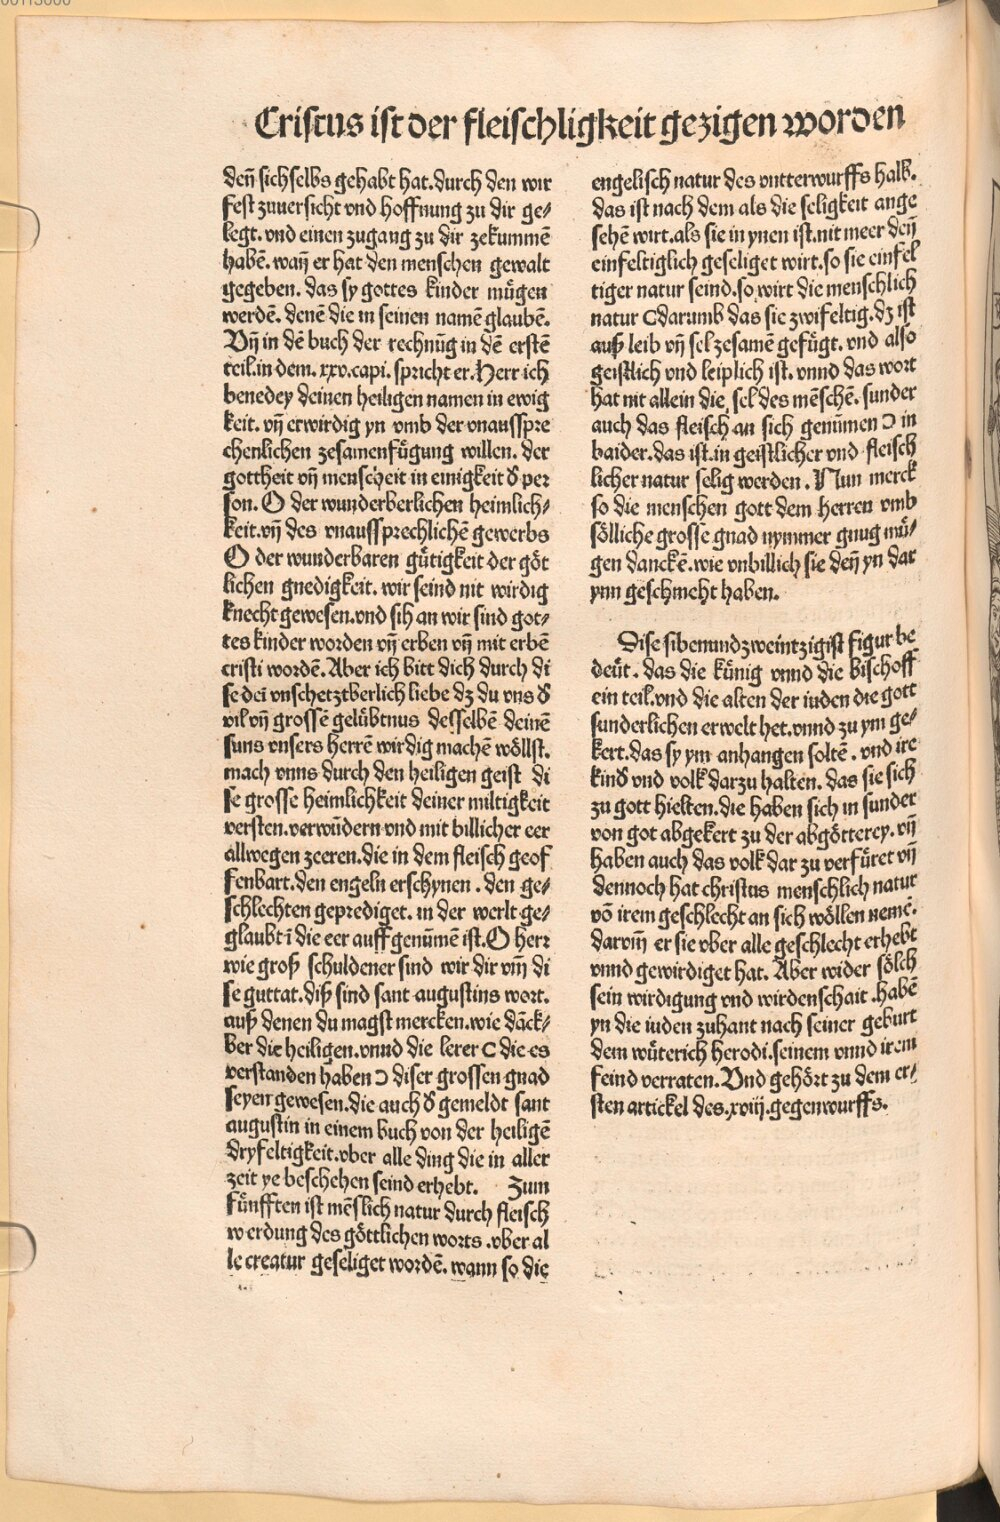 Cristus ist der fleischligkeit gezigen worden
deñ sichselbs gehabt hat.durch den wir
fest zuuersicht vnd hoffnung zu dir ge⸗
legt.vnd einen zugang zu dir zekummē
habē.wañ er hat den menschen gewalt
gegeben. das sy gottes kinder mügen
werdē. denē die in seinen namē glaubē.
Vñ in dē buch der rechnūg in dē erstē
teil.in dem.xxv.capi.spricht er.Herr ich
benedey deinen heiligen namen in ewig
keit.vñ erwirdig yn vmb der vnausspre
chenlichen zesamenfügung willen. der
gottheit vñ menscheit in einigkeit ð per
son. O der wunderberlichen heimlich⸗
keit.vñ des vnaussprechlichē gewerbs
O der wunderbaren gütigkeit der göt
lichen gnedigkeit. wir seind nit wirdig
knecht gewesen.vnd sih an wir sind got⸗
tes kinder worden vñ erben vñ mit erbē
cristi wordē. Aber ich bitt dich durch di
se dei vnschetztberlich liebe dz du vns ð
vil vñ grossē gelübtnus desselbē deinē
suns vnsers herrē wirdig machē wöllst.
mach vnns durch den heiligen geist di
se grosse heimlichkeit deiner miltigkeit
versten.verwūdern vnd mit billicher eer
allwegen zeeren.die in dem fleisch geof
fenbart.den engeln erschynen . den ge⸗
schlechten geprediget. in der werlt ge⸗
glaubt ī die eer auff genūmē ist.O herr
wie groß schuldener sind wir dir vm̄ di
se guttat.diß sind sant augustins wort.
auß denen du magst mercken.wie dāck⸗
ber die heiligen.vnnd die lerer C die es
verstanden haben Ɔ diser grossen gnad
seyen gewesen.die auch ð gemeldt sant
augustin in einem buch von der heiligē
dryfeltigkeit.vber alle ding die in aller
zeit ye beschehen seind erhebt. Zum
fünfften ist mēslich natur durch fleisch
werdung des göttlichen worts .vber al
le creatur geseliget wordē. wann so die
engelisch natur des vntterwurffs halb.
das ist nach dem als die seligkeit ange
sehē wirt.als sie in ynen ist.nit meer deñ
einfeltiglich geseliget wirt.so sie einfel
tiger natur seind.so wirt die menschlich
natur C darumb das sie zwifeltig.dz ist
auß leib vñ sel zesamē gefügt. vnd also
geistlich vnd leiplich ist. vnnd das wort
hat nit allein die sel des mēschē. sunder
auch das fleisch an sich genūmen Ɔ in
baider.das ist.in geistlicher vnd fleisch
licher natur selig werden . Nun merck
so die menschen gott dem herren vmb
sölliche grosse gnad nymmer gnug mü⸗
gen danckē.wie vnbillich sie deñ yn dar
ynn geschmeht haben.
Dise sibenundzweintzigist figur be
deüt. das die künig vnnd die bischoff
ein teil.vnd die alten der iuden die gott
sunderlichen erwelt het.vnnd zu ym ge⸗
kert.das sy ym anhangen soltē . vnd ire
kind vnd volk darzu halten. das sie sich
zu gott hielten.die haben sich in sunder
von got abgekert zu der abgötterey. vñ
haben auch das volk dar zu verfüret vñ
dennoch hat christus menschlich natur
vō irem geschlecht an sich wöllen nemē.
darvm̄ er sie vber alle geschlecht erhebt
vnnd gewirdiget hat. Aber wider sölch
sein wirdigung vnd wirdenschait .habē
yn die iuden zuhant nach seiner geburt
dem wüterich herodi.seinem vnnd irem
feind verraten. Vnd gehört zu dem er⸗
sten artickel des.xviij.gegenwurffs.